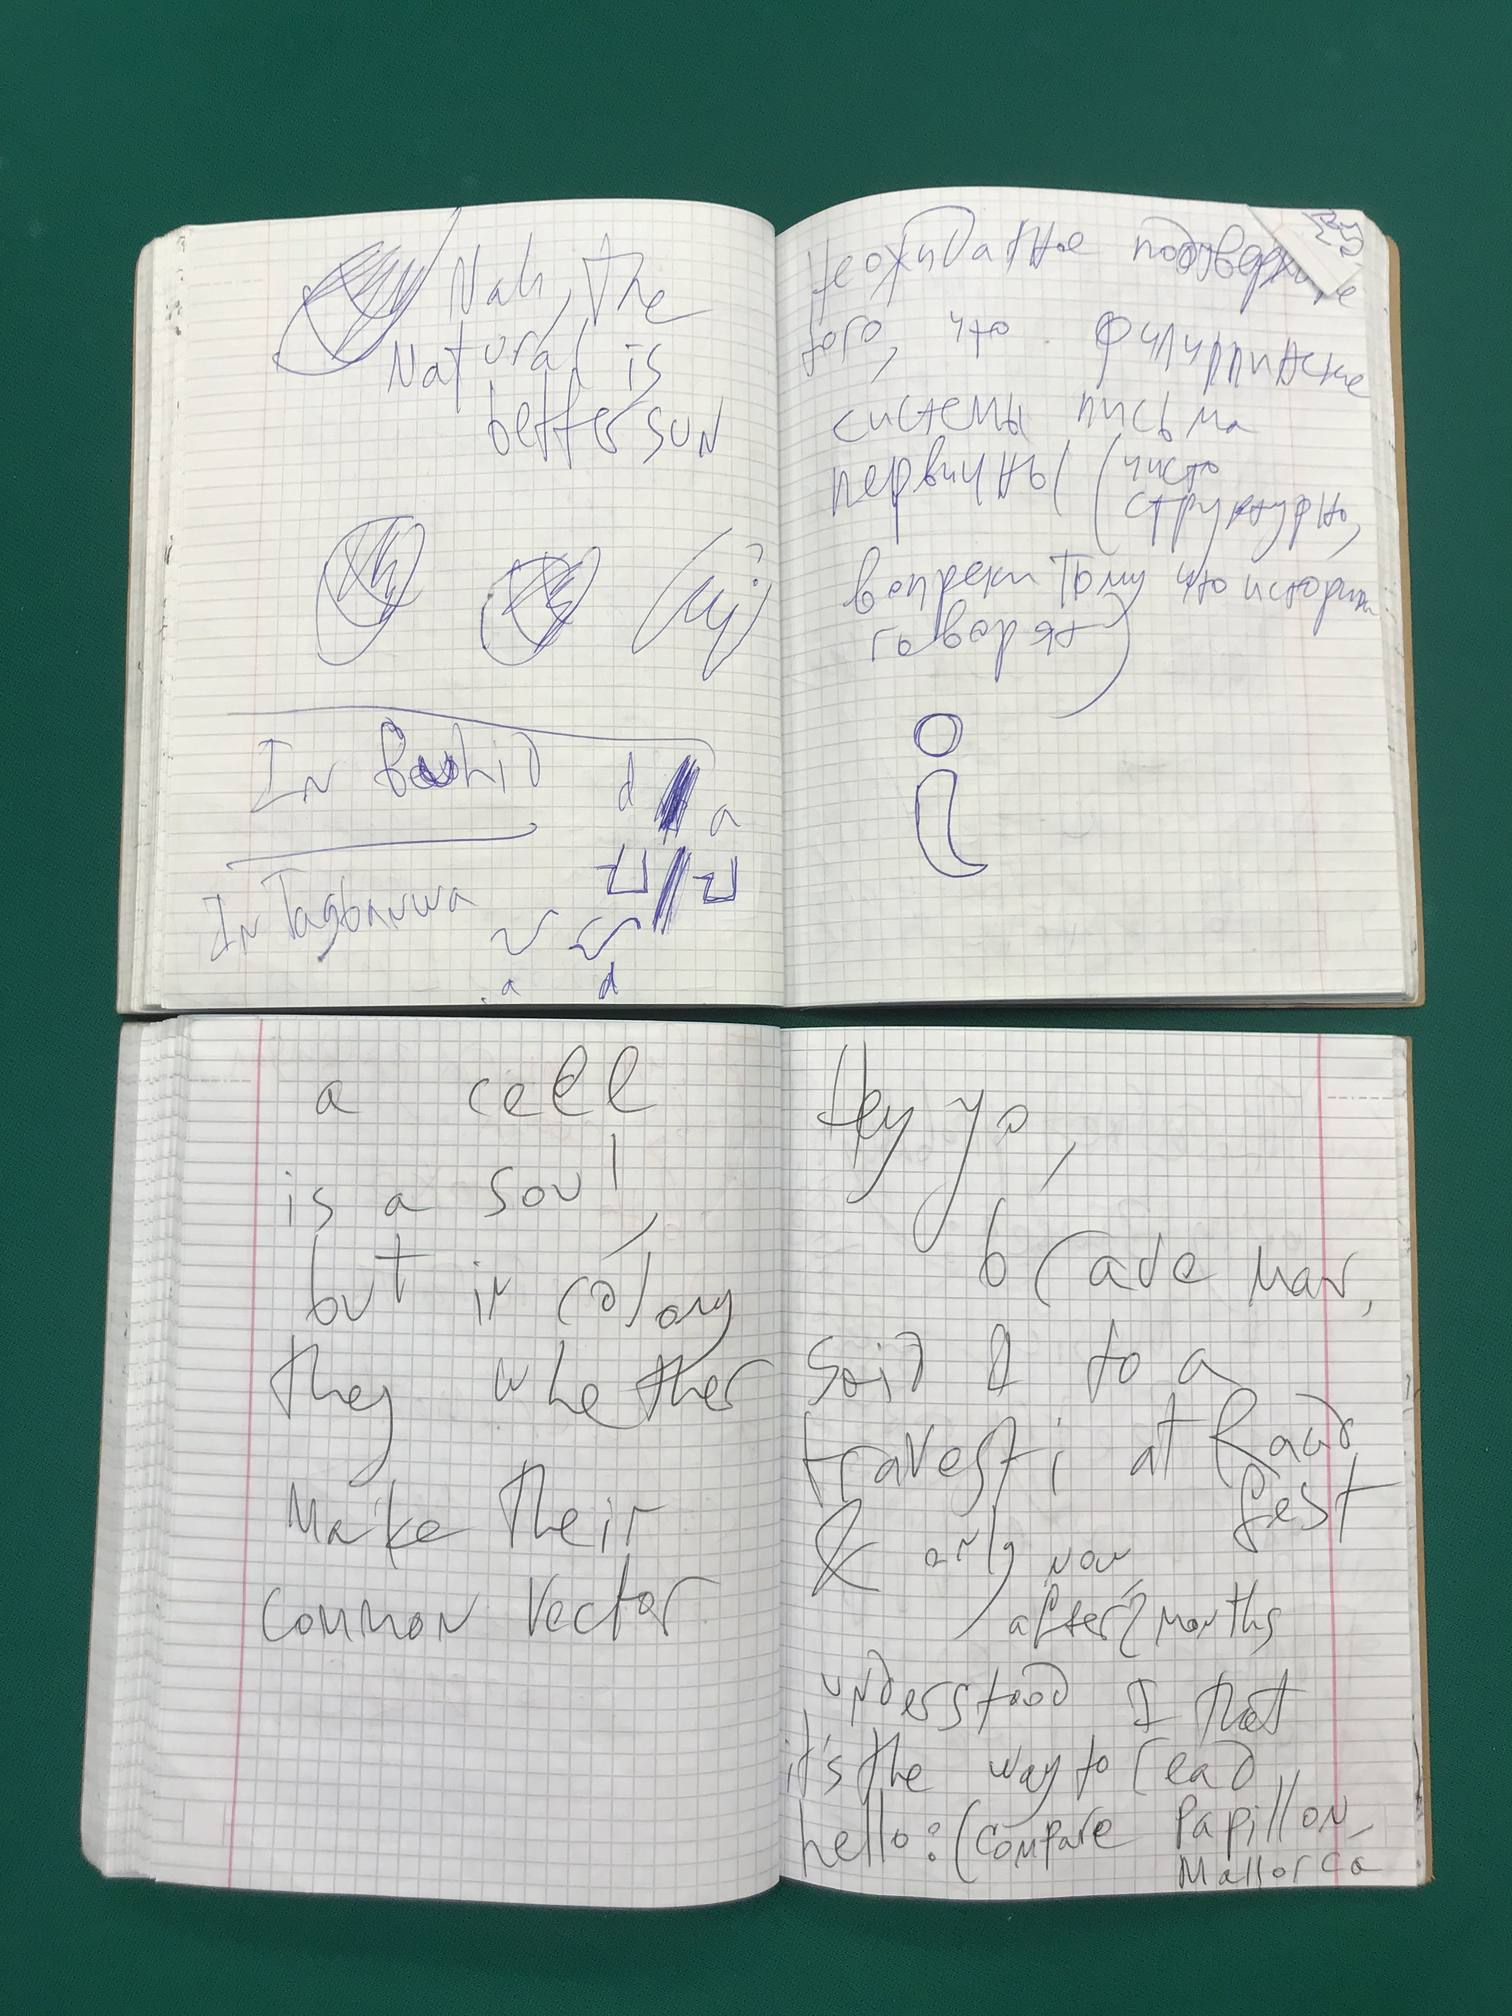 Nah, the
Natural is
better SUN
In Buhid
d a
In Tagbanwa
a d
Неожиданное подтверждение
того, что филиппинские
системы письма
первичны (чисто
структурно,
вопреки тому что историки
говорят)
i
a cell
is a soul,
but in colony
they whether
make their
common vector
Hey yo,
brave man,
said I to a
travesti at
fest
& only now,
after 2 months
understood I that
it's the way to read
hello: (compare Papillon,
Mallorca